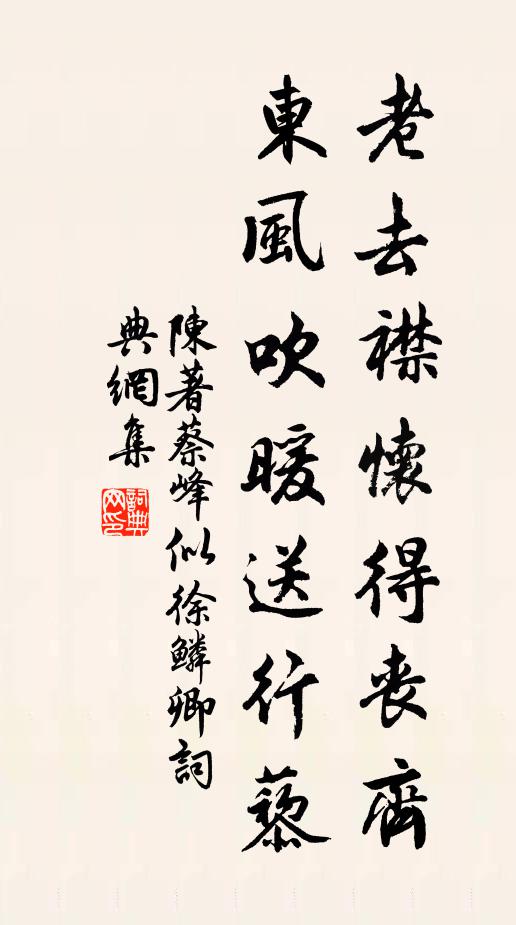 老去襟懷得喪齊
東風吹暖送行藜
陳著蔡峰似徐鱗卿詞
典網集
詞典网印